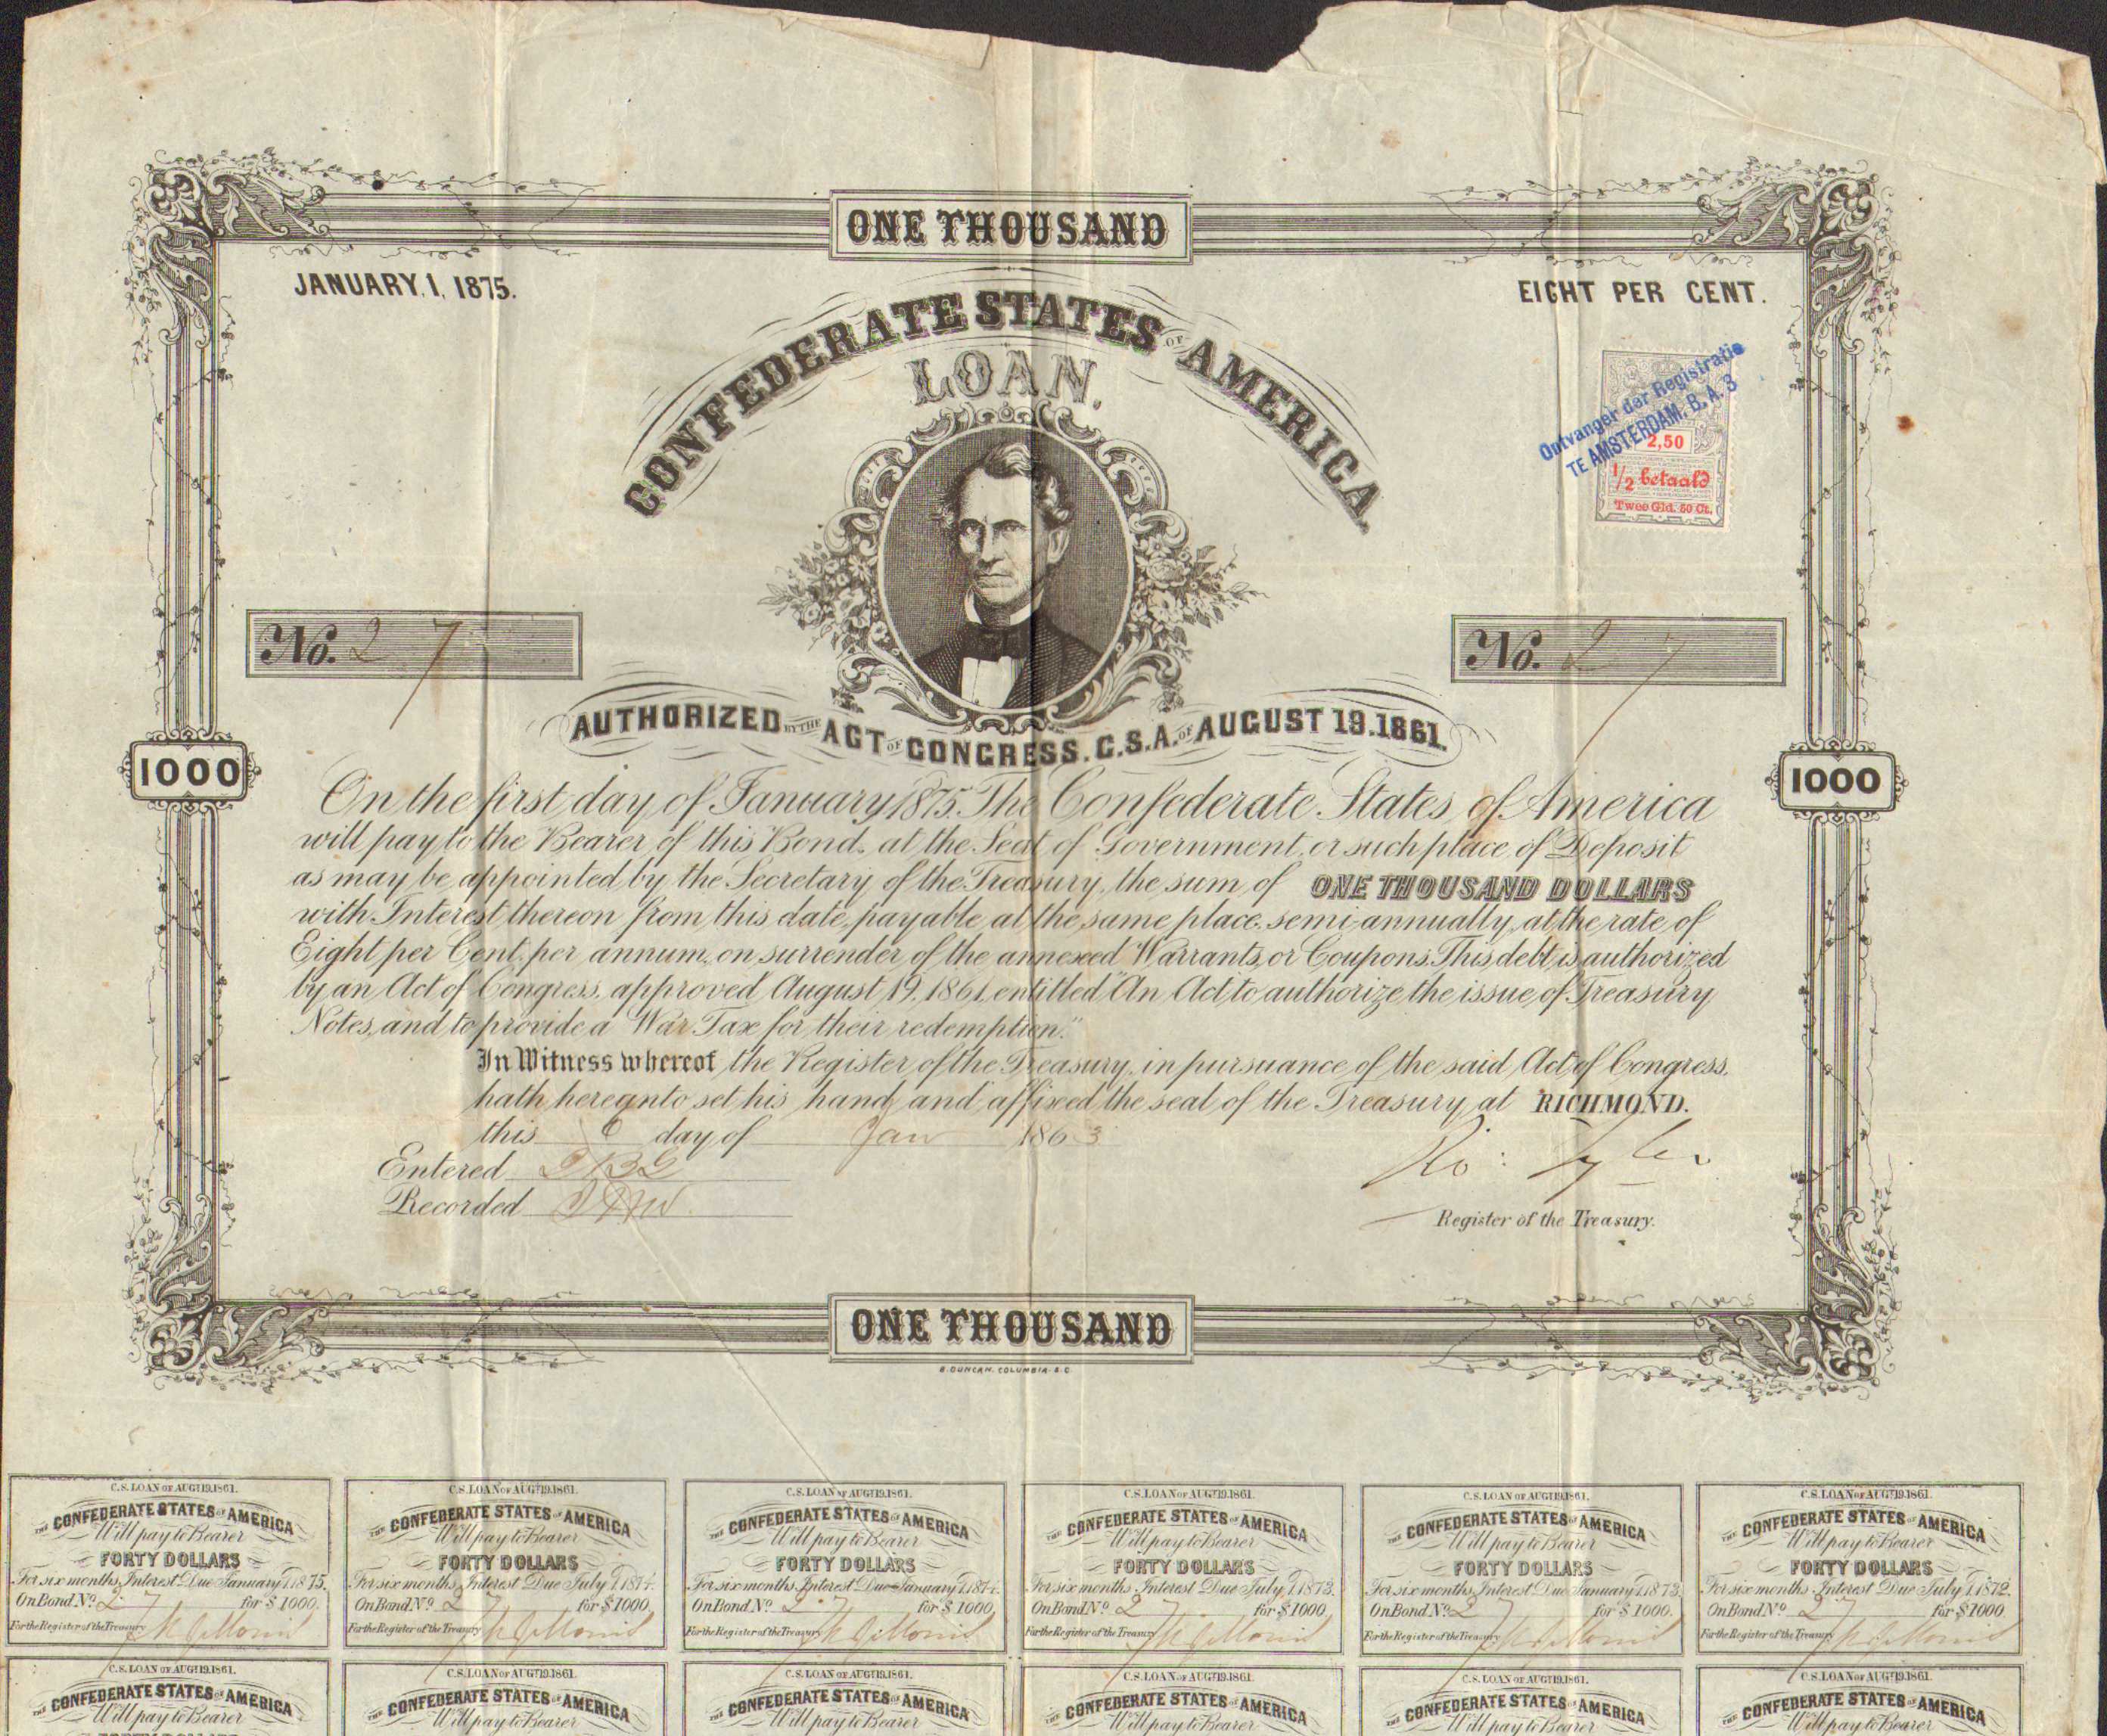 ONE THOUSAND
JANUARY, 1, 1875.
EIGHT PER CENT.
CONFEDERATE STATES OF AMERICA.
LOAN.
Ontvanger der Registratie
TE AMSTERDAM, B. A. 3
2,50
1/2 betaald
Twee Gld. 50 Ct.
No. 27
No. 27
AUTHORIZED BY THE ACT OF CONGRESS. C.S.A. OF AUGUST 19. 1861.
1000
1000
On the first day of January 1875. The Confederate States of America
will pay to the Bearer of this Bond, at the Seat of Government, or such place of Deposit
as may be appointed by the Secretary of the Treasury, the sum of ONE THOUSAND DOLLARS
with Interest thereon from this date, payable at the same place, semi-annually, at the rate of
Eight per Cent. per annum, on surrender of the annexed Warrants, or Coupons. This debt is authorized
by an Act of Congress, approved August 19. 1861, entitled "An Act to authorize the issue of Treasury
Notes, and to provide a War Tax for their redemption."
In Witness whereof the Register of the Treasury, in pursuance of the said Act of Congress,
hath hereunto set his hand, and affixed the seal of the Treasury, at RICHMOND.
this 6 day of Jan 1863
Entered
Recorded
Ro: Tyler
Register of the Treasury.
ONE THOUSAND
B. DUNCAN, COLUMBIA S.C.
C.S. LOAN OF AUGT 19. 1861.
THE CONFEDERATE STATES OF AMERICA
Will pay to Bearer
FORTY DOLLARS
For six months Interest Due January 1. 1875.
On Bond No 27 for $1000.
For the Register of the Treasury
C.S. LOAN OF AUGT 19. 1861.
THE CONFEDERATE STATES OF AMERICA
Will pay to Bearer
FORTY DOLLARS
For six months Interest Due July 1. 1874.
On Bond No 27 for $1000.
For the Register of the Treasury
C.S. LOAN OF AUGT 19. 1861.
THE CONFEDERATE STATES OF AMERICA
Will pay to Bearer
FORTY DOLLARS
For six months Interest Due January 1. 1874.
On Bond No 27 for $1000.
For the Register of the Treasury
C.S. LOAN OF AUGT 19. 1861.
THE CONFEDERATE STATES OF AMERICA
Will pay to Bearer
FORTY DOLLARS
For six months Interest Due July 1. 1873.
On Bond No 27 for $1000
For the Register of the Treasury
C.S. LOAN OF AUGT 19. 1861.
THE CONFEDERATE STATES OF AMERICA
Will pay to Bearer
FORTY DOLLARS
For six months Interest Due January 1. 1873.
On Bond No 27 for $1000.
For the Register of the Treasury
C.S. LOAN OF AUGT 19. 1861.
THE CONFEDERATE STATES OF AMERICA
Will pay to Bearer
FORTY DOLLARS
For six months Interest Due July 1. 1872.
On Bond No 27 for $1000.
For the Register of the Treasury
C.S. LOAN OF AUGT 19. 1861.
THE CONFEDERATE STATES OF AMERICA
Will pay to Bearer
C.S. LOAN OF AUGT 19. 1861.
THE CONFEDERATE STATES OF AMERICA
Will pay to Bearer
C.S. LOAN OF AUGT 19. 1861.
THE CONFEDERATE STATES OF AMERICA
Will pay to Bearer
C.S. LOAN OF AUGT 19. 1861.
THE CONFEDERATE STATES OF AMERICA
Will pay to Bearer
C.S. LOAN OF AUGT 19. 1861.
THE CONFEDERATE STATES OF AMERICA
Will pay to Bearer
C.S. LOAN OF AUGT 19. 1861.
THE CONFEDERATE STATES OF AMERICA
Will pay to Bearer